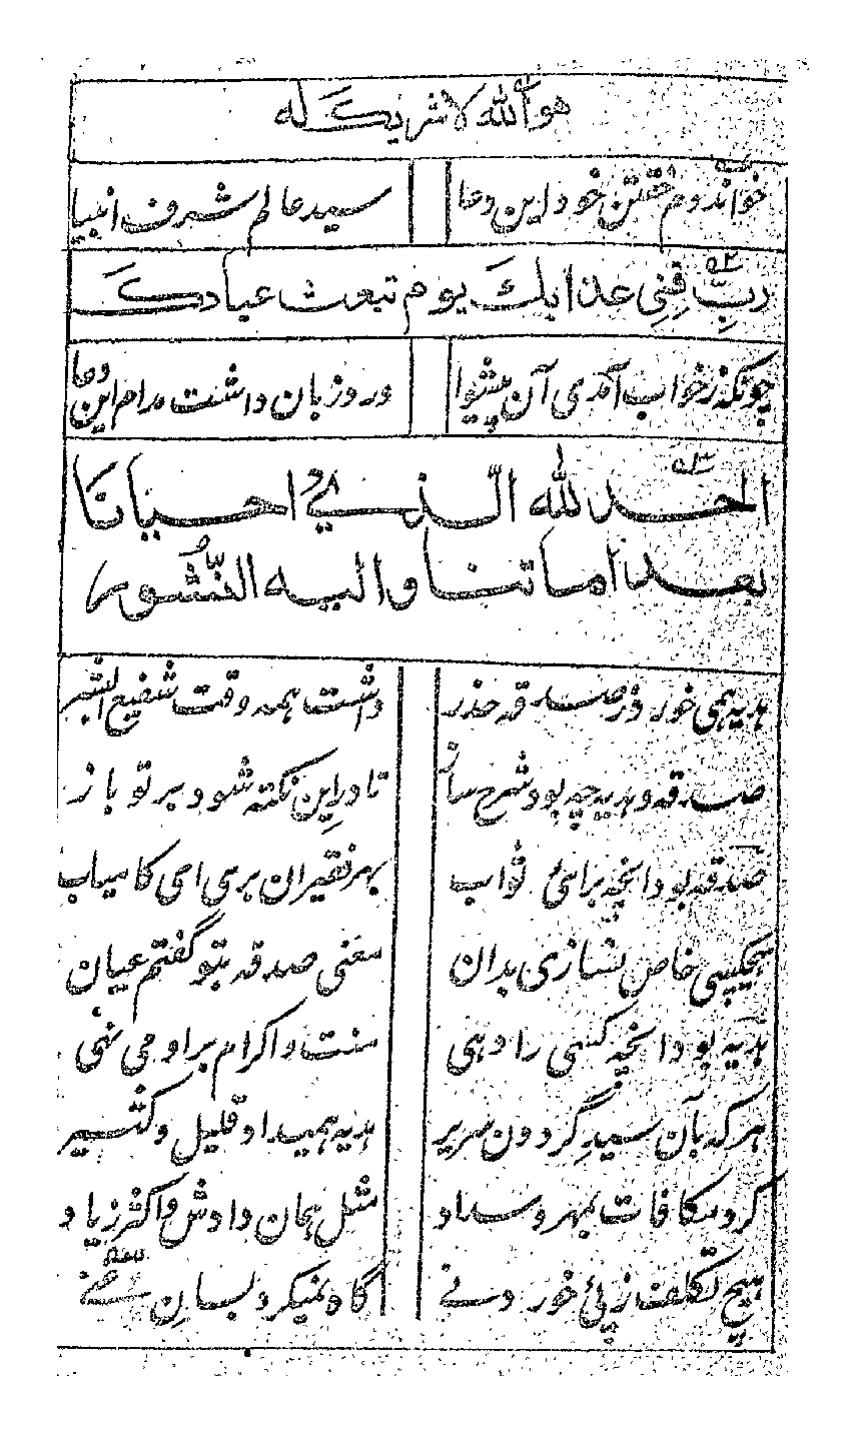 هو الله لا شریک له
خواند دم خفتن خود این دعا سید عالم شرف انبیا
۵۲
ربِّ قِنِی عذابکَ یوم تبعث عبادکَ
چونکه زخواب آمدی آن پیشوا ورد زبان داشت مدام این دعا
۵۳
الحمد لله الّذی احیانَا
بعد اماتنا والیه النّشُور
هدیه همی خورد وز صدقه حذر داشت همه وقت شفیع البشر
صدقه و هدیه چه بود شرح ساز تا درِ این نکته شود بر تو باز
صدقه بود انچه برائ ثواب بهر فقیران برهی ای کامیاب
هیچکسی خاص نسازی بدان معنی صدقه بتو گفتم عیان
هدیه بود انچه کسی را دهی منت و اکرام برا و می نهی
هر که بآن سیدِ گردون سریر هدیه همیداد قلیل و کثیر
کرد مکافات بمهر و سداد مثل همان دادش و اکثر زیاد
هیچ تکلف ز پئ خوردنے گاه نمیکرد بسانِ